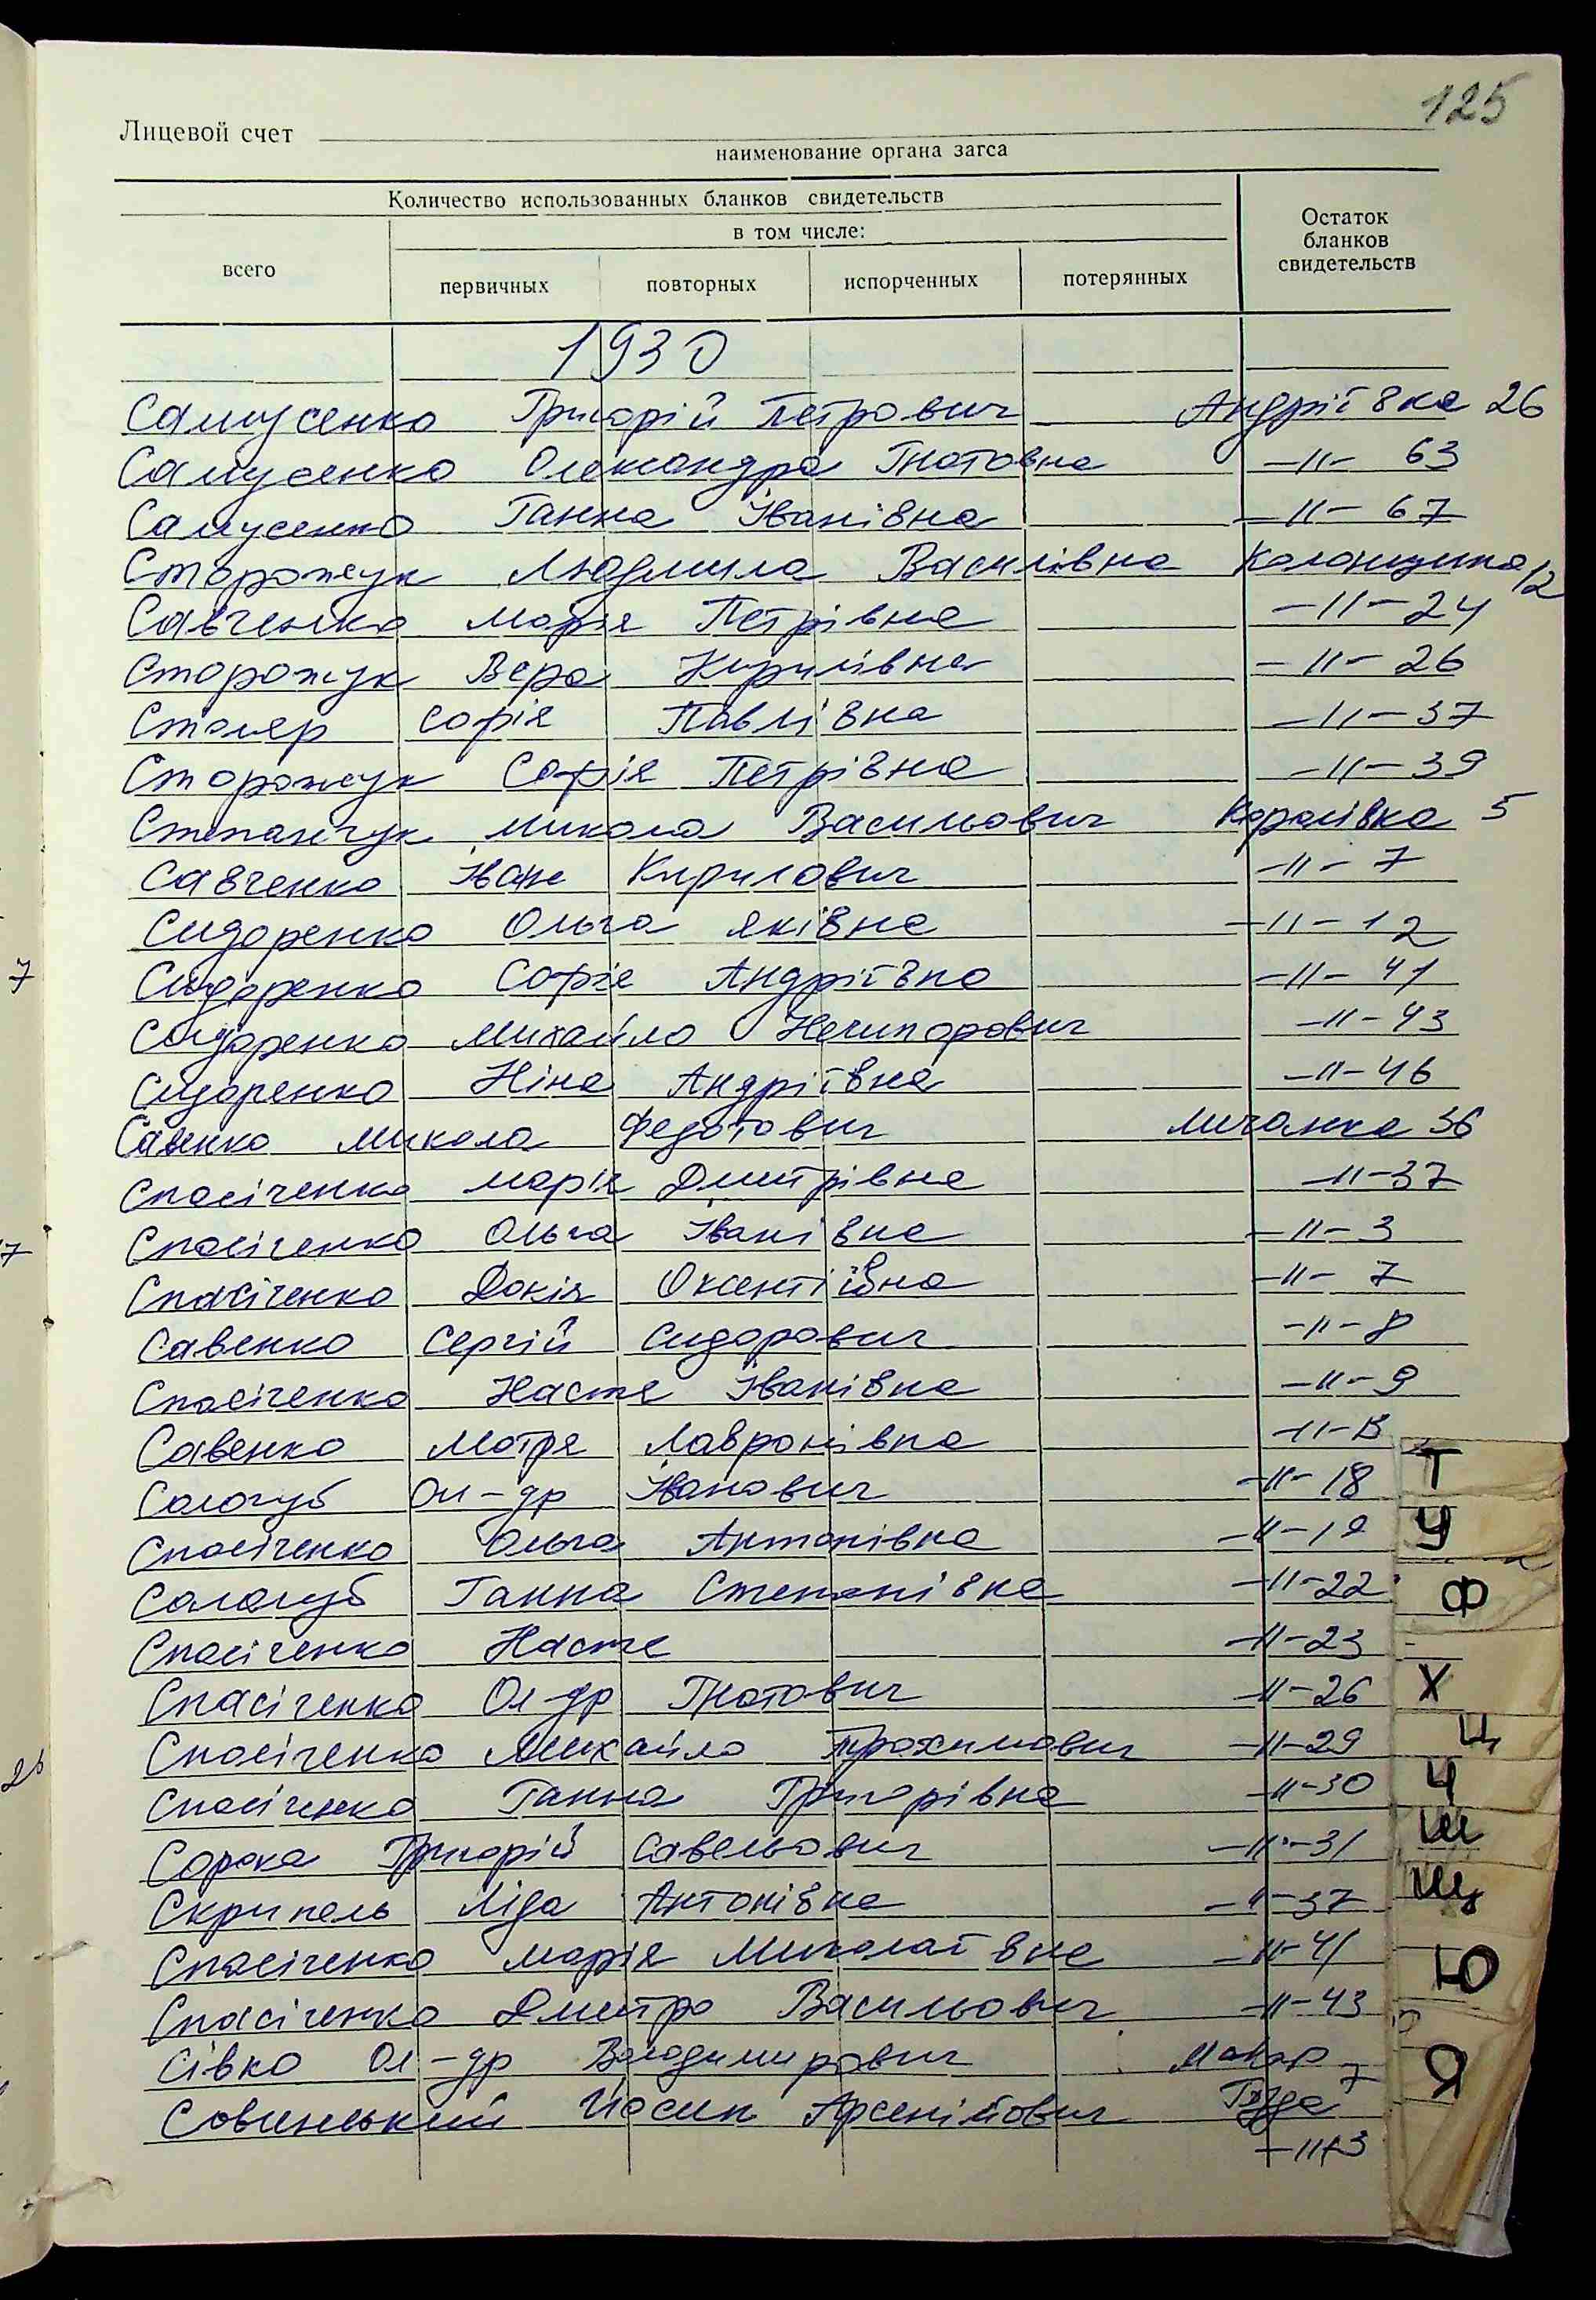 125
Лицевой счет
наименование органа загса
Количество использованных бланков свидетельств
Остаток бланков свидетельств
в том числе:
всего
первичных повторных испорченных потерянных
1930
Самусенко Григорій Петрович Андріївка 26
Самусенко Олександра Гнатовна -"- 63
Самусенко Ганна Іванівна -"- 67
Сторожук Людмила Василівна Колонщина 12
Савченко Марія Петрівна -"- 24
Сторожук Вера Кирилівна -"- 26
Столяр Софія Павлівна -"- 37
Сторожук Софія Петрівна -"- 39
Степанчук Микола Васильович Королівка 5
Савченко Іван Кирилович -"- 7
Сидоренко Ольга Яківна -"- 12
Сидоренко Софія Андріївна -"- 41
Сидоренко Михайло Нечипорович -"- 43
Сидоренко Ніна Андріївна -"- 46
Савенко Микола Федотович Личанка 36
Спасіченко Марія Дмитрівна -"- 37
Спасіченко Ольга Іванівна -"- 3
Спасіченко Докія Оксентіївна -"- 7
Савенко Сергій Сидорович -"- 8
Спасіченко Настя Іванівна -"- 9
Савенко Мотря Лавронівна -"-
Сологуб Ол-др Іванович -"- 18
Спасіченко Ольга Антонівна -"- 19
Сологуб Ганна Степанівна -"- 22
Спасіченко Настя -"- 23
Спасіченко Ол-др Гнатович -"- 26
Спасіченко Михайло Трохимович -"- 29
Спасіченко Ганна Григорівна -"- 30
Сорока Григорій Савельович -"- 31
Скрипель Ліда Антонівна -"- 37
Спасіченко Марія Миколаївна -"- 41
Спасіченко Дмитро Васильович -"- 43
Сівко Ол-др Володимирович Макар 7
Совинський Йосип Арсенійович
-"- 3
7
7
Т
У
Ф
Х
Ц
Ч
Ш
Щ
Ю
Я